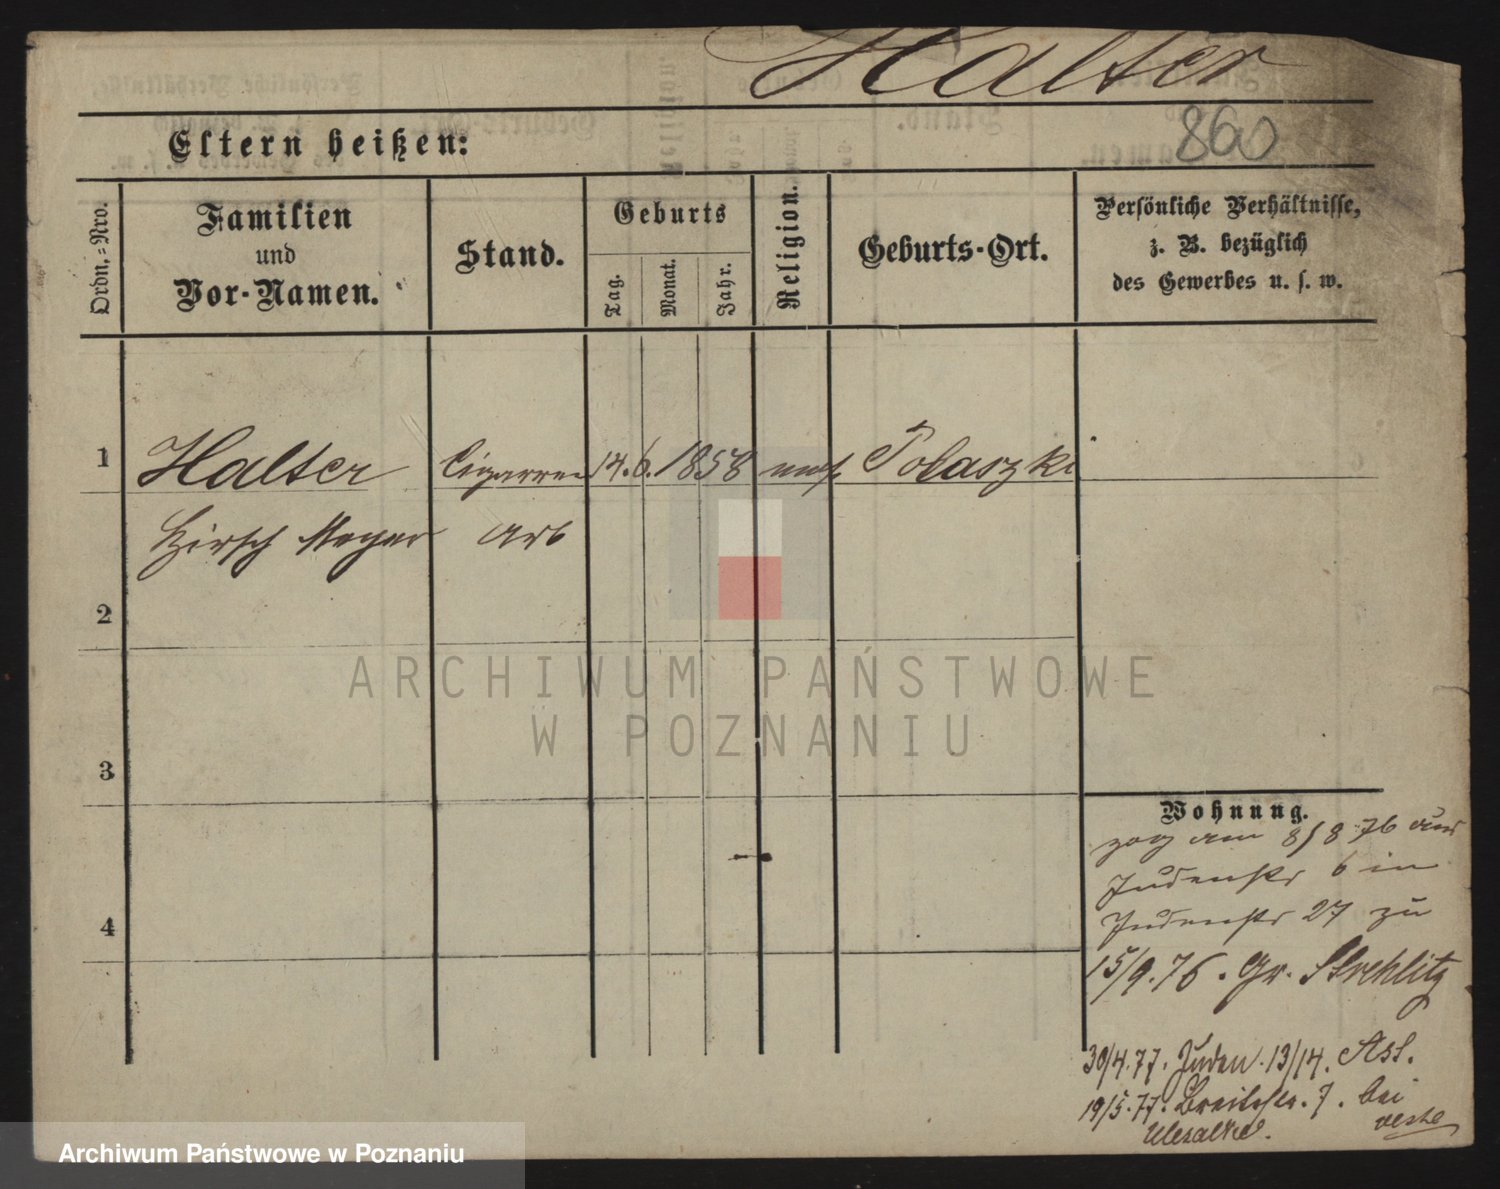 Halter
860
Eltern heißen:
Ordn.=Nro.
Familien
und
Vor-Namen.
Stand.
Geburts
Tag.
Monat.
Jahr.
Religion.
Geburts-Ort.
Persönliche Verhältnisse,
z. B. bezüglich
des Gewerbes u. s. w.
1 Halter Cigarren 14. 6. 1858 mos. Polaszki
Hirsch Meyer Arb
2
3
4
Wohnung.
zog am 8/8 76 aus
Judenstr 6 in
Judenstr 27 zu
15/9. 76. Gr. Strehlitz
30/4. 77. Juden. 13/14.
19/5. 77. Breitestr. 7. bei
ARCHIWUM PAŃSTWOWE
W POZNANIU
Archiwum Państwowe w Poznaniu